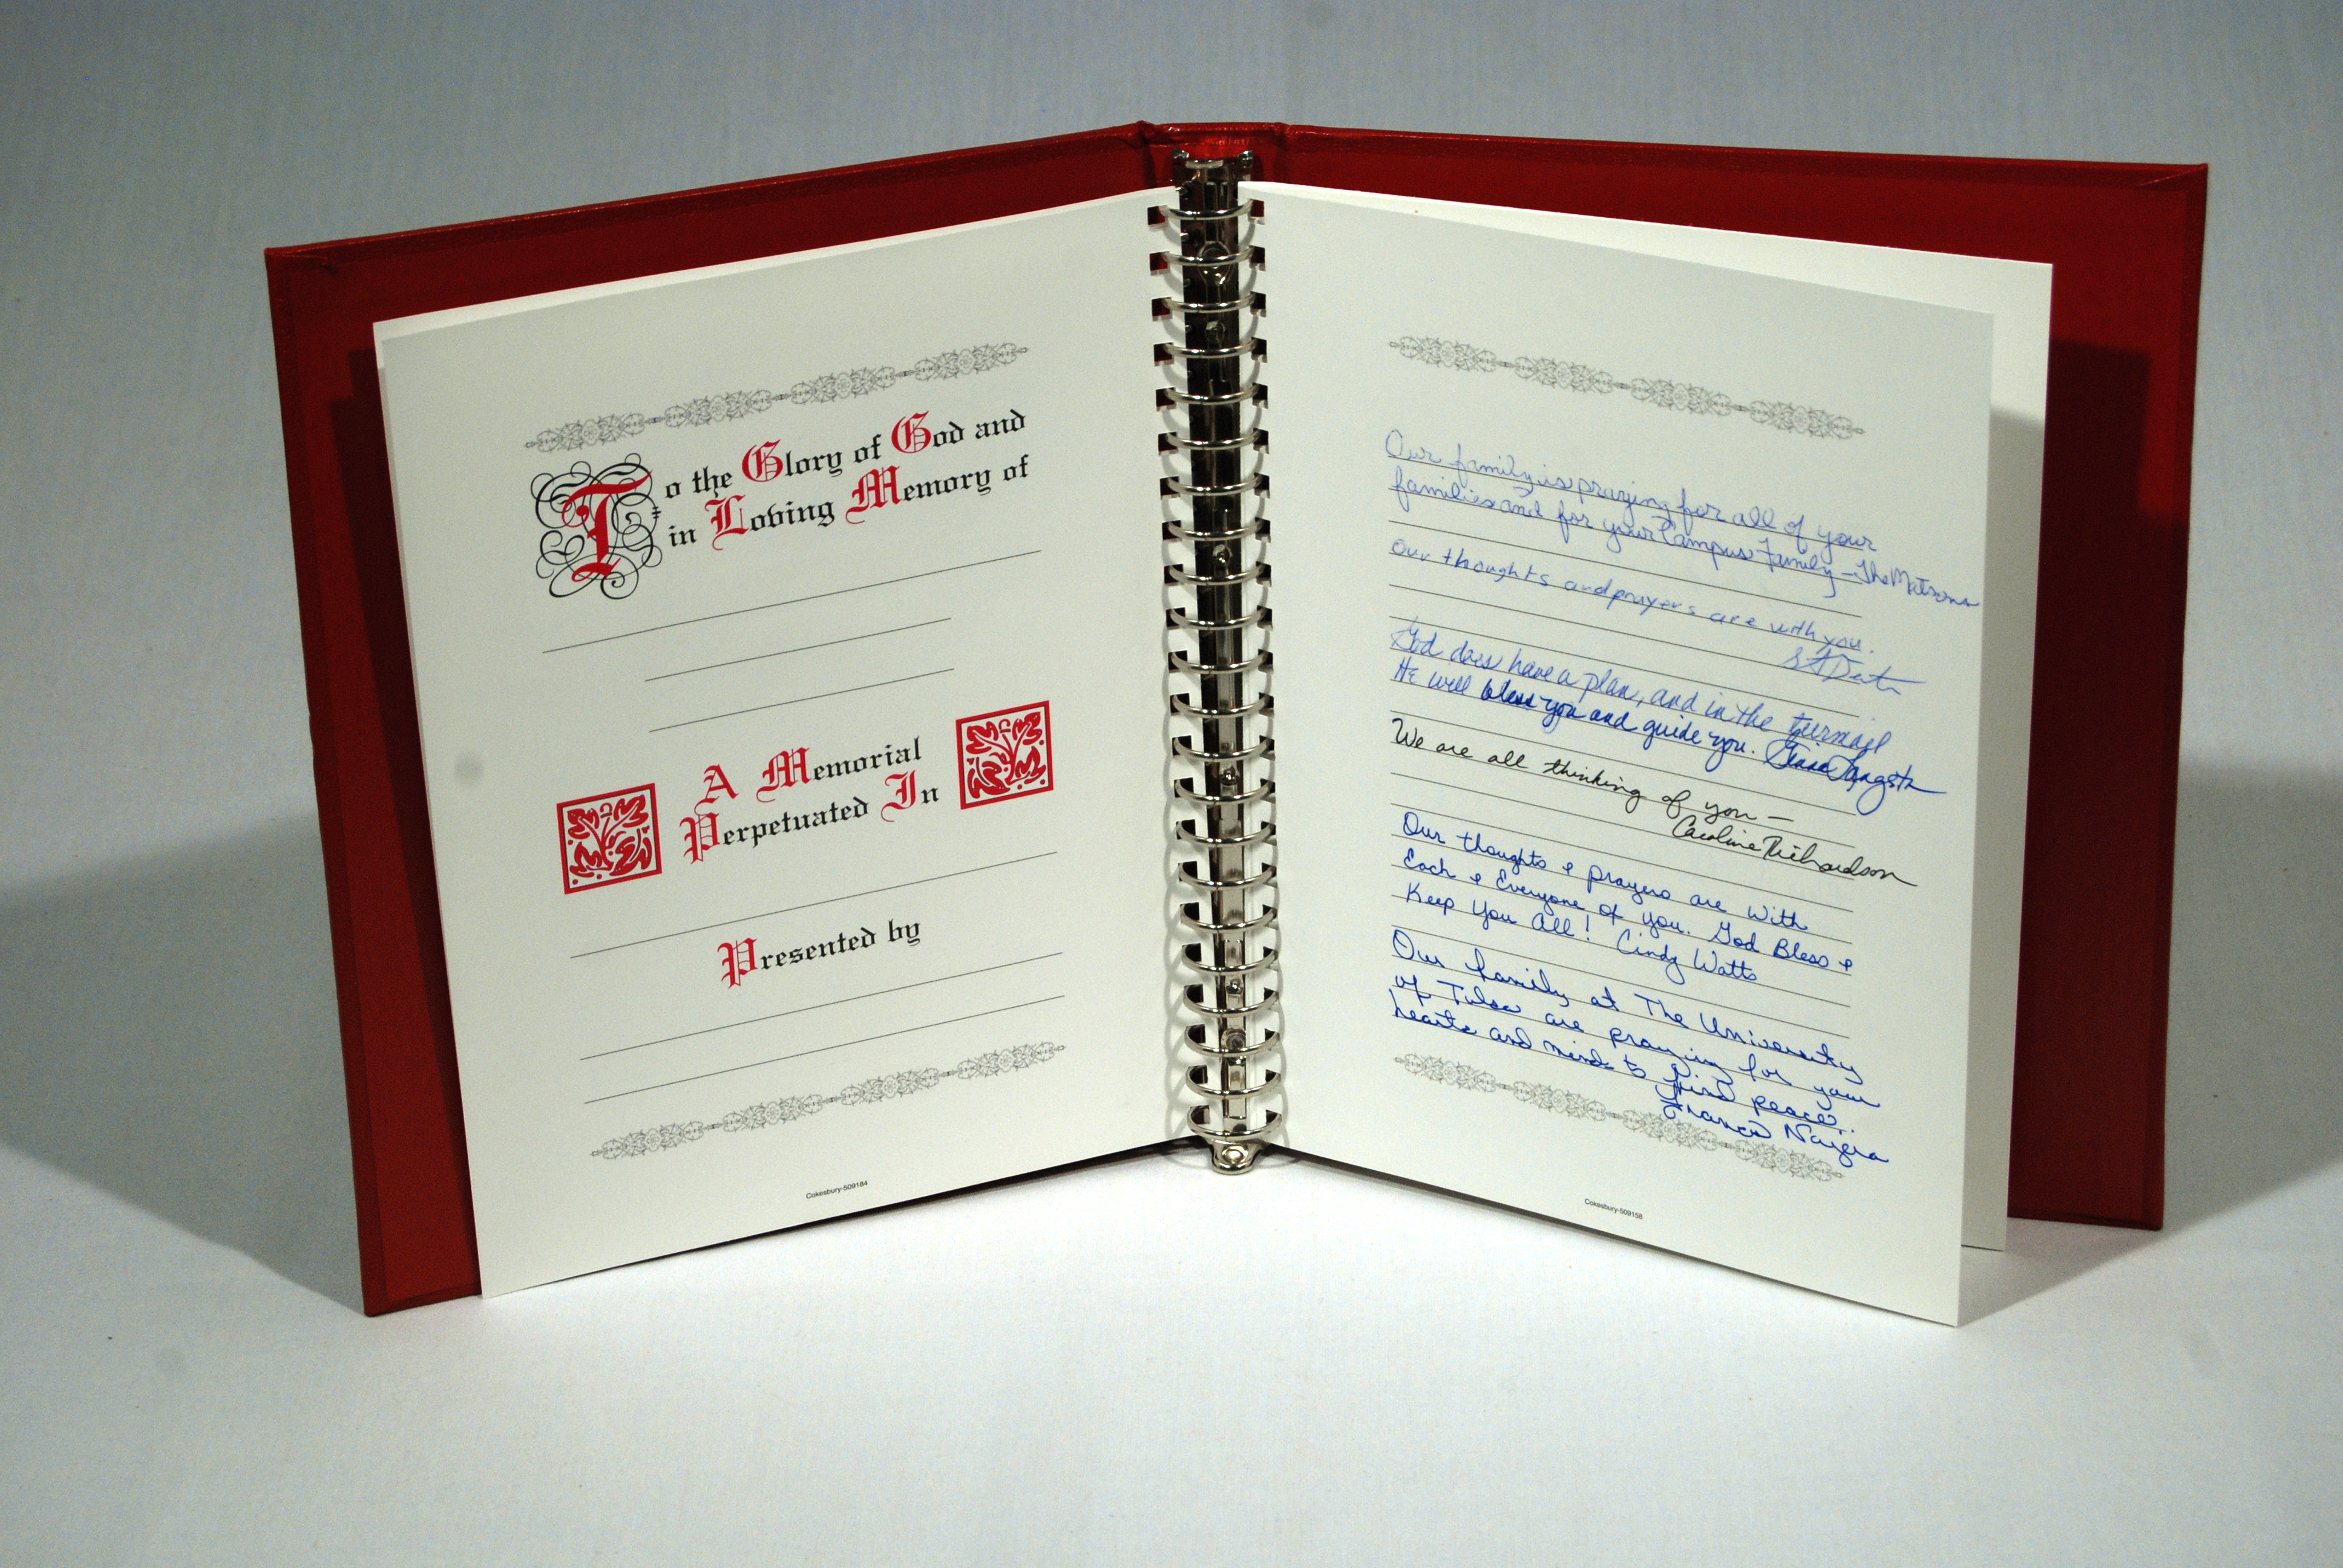 To the Glory of God and
in Loving Memory of
A Memorial
Perpetuated In
Presented by
Cokesbury-509184
Our family is praying for all of your
families and for your Campus Family - The Matsons
our thoughts and prayers are with you.
God does have a plan, and in the turmoil
He will bless you and guide you.
We are all thinking of you —
Caroline Richardson
Our thoughts & prayers are with
Each & Everyone of you. God Bless &
Keep You All! Cindy Watts
Our family at The University
of Tulsa are praying for your
hearts and minds to find peace..
Cokesbury-509158